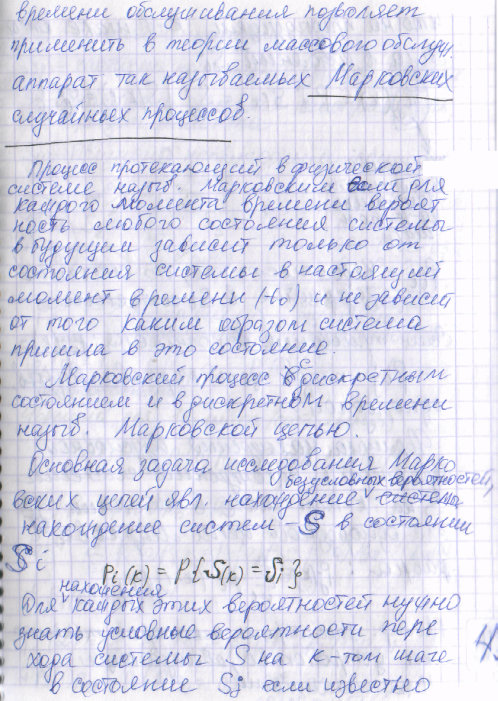 времени обслуживания позволяет
применить в теории массового обслуж.
аппарат так называемых Марковских
случайных процессов.
Процесс протекающий в физической
системе назыв. Марковским если для
каждого момента времени вероят
ность любого состояния системы
в будущем зависит только от
состояния системы в настоящий
момент времени (t₀) и не зависит
от того каким образом система
пришла в это состояние.
Марковский процесс с дискретным
состоянием и в дискретном времени
назыв. Марковской цепью.
Основная задача исследования Марко
безусловных вероятностей,
вских цепей явл. нахождение системы
нахождение систем – S в состоянии
Si
Pi(к) = P{S(к) = Si}
нахождения
Для каждых этих вероятностей нужно
знать условные вероятности пере
хода системы S на к-том шаге
в состояние Sj если известно